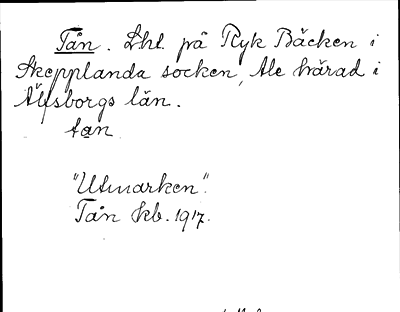 Tån. Lhl. på Ryk Bäcken i
Skepplanda socken, Ale härad i
Älfsborgs län.
tån
"Utmarken".
Tån kb. 1917.